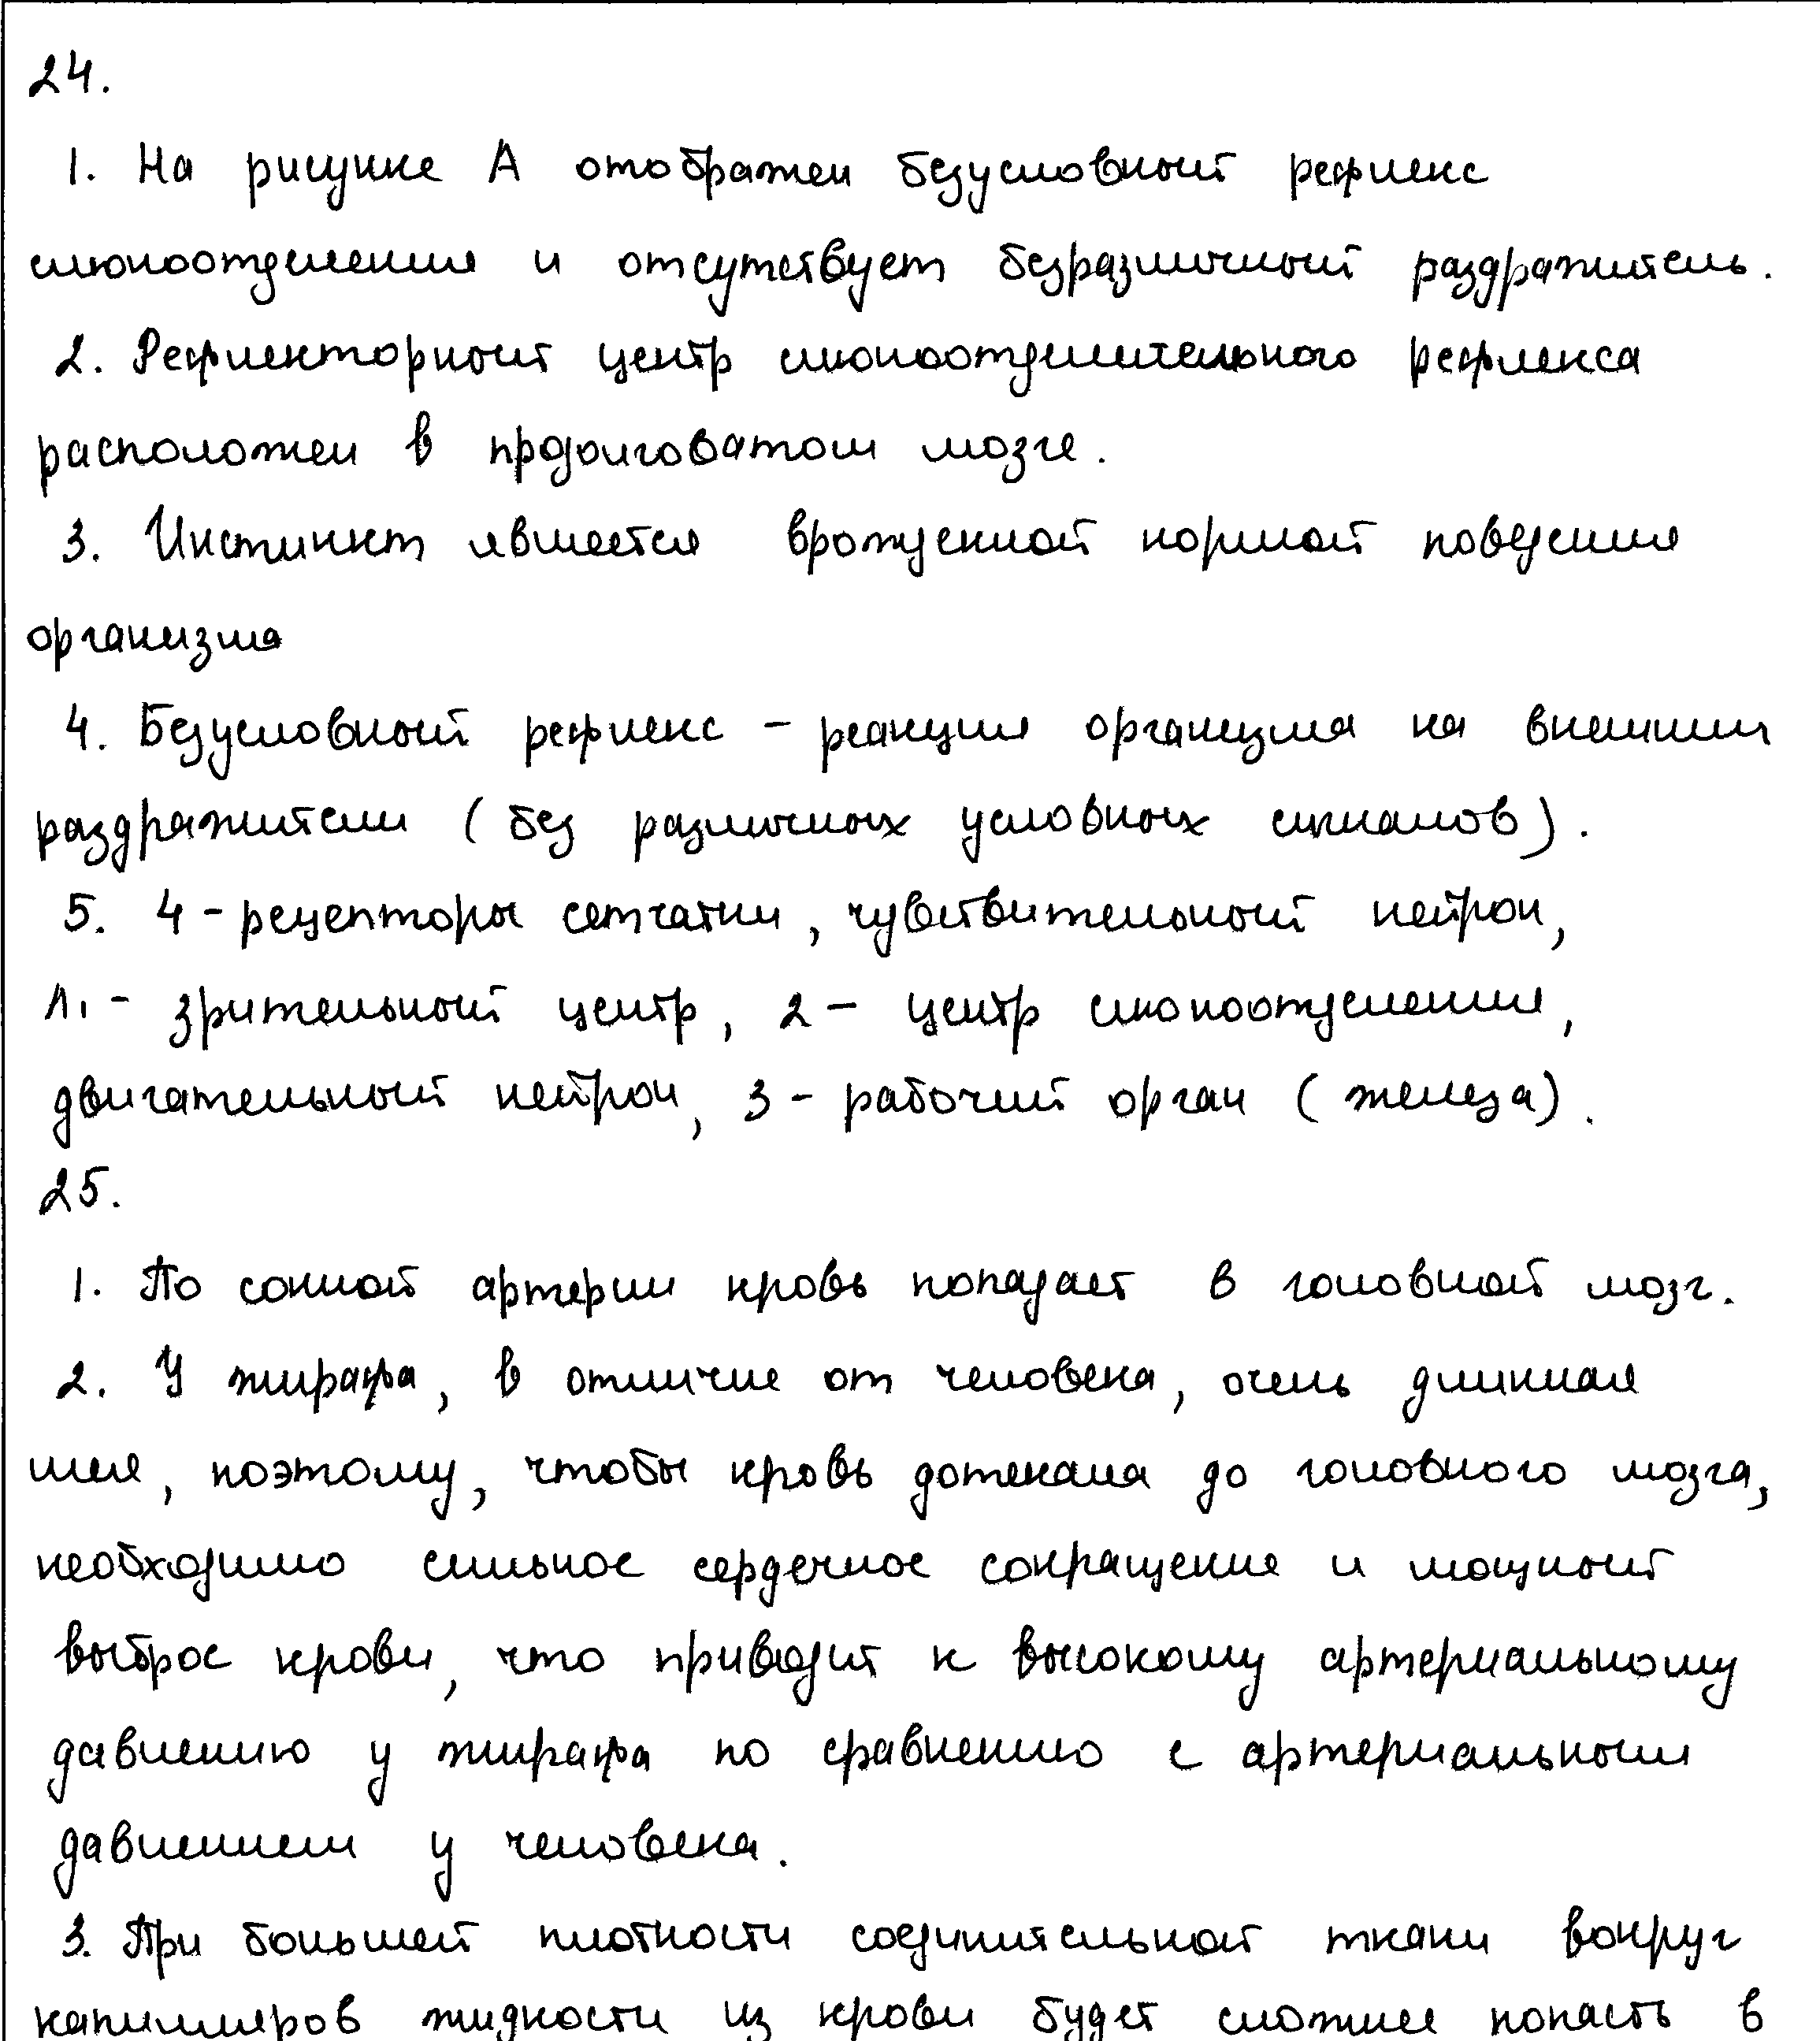 24.
1. На рисунке А отображен безусловный рефлекс
слюноотделения и отсутствует безразличный раздражитель.
2. Рефлекторный центр слюноотделительного рефлекса
расположен в продолговатом мозге.
3. Инстинкт является врожденной нормой поведения
организма
4. Безусловный рефлекс - реакция организма на внешнии
раздражители (без различных условных сигналов).
5. 4 - рецепторы сетчатки, чувствительный нейрон,
1. - зрительный центр, 2 - центр слюноотделения,
двигательный нейрон, 3 - рабочий орган (железа).
25.
1. По сонной артерии кровь попадает в головной мозг.
2. У жирафа, в отличие от человека, очень длинная
шея, поэтому, чтобы кровь дотекала до головного мозга,
необходимо сильное сердечное сокращение и мощный
выброс крови, что приводит к высокому артериальному
давлению у жирафа по сравнению с артериальным
давлением у человека.
3. При большей плотности соединительной ткани вокруг
капилляров жидкости из крови будет сложнее попасть в